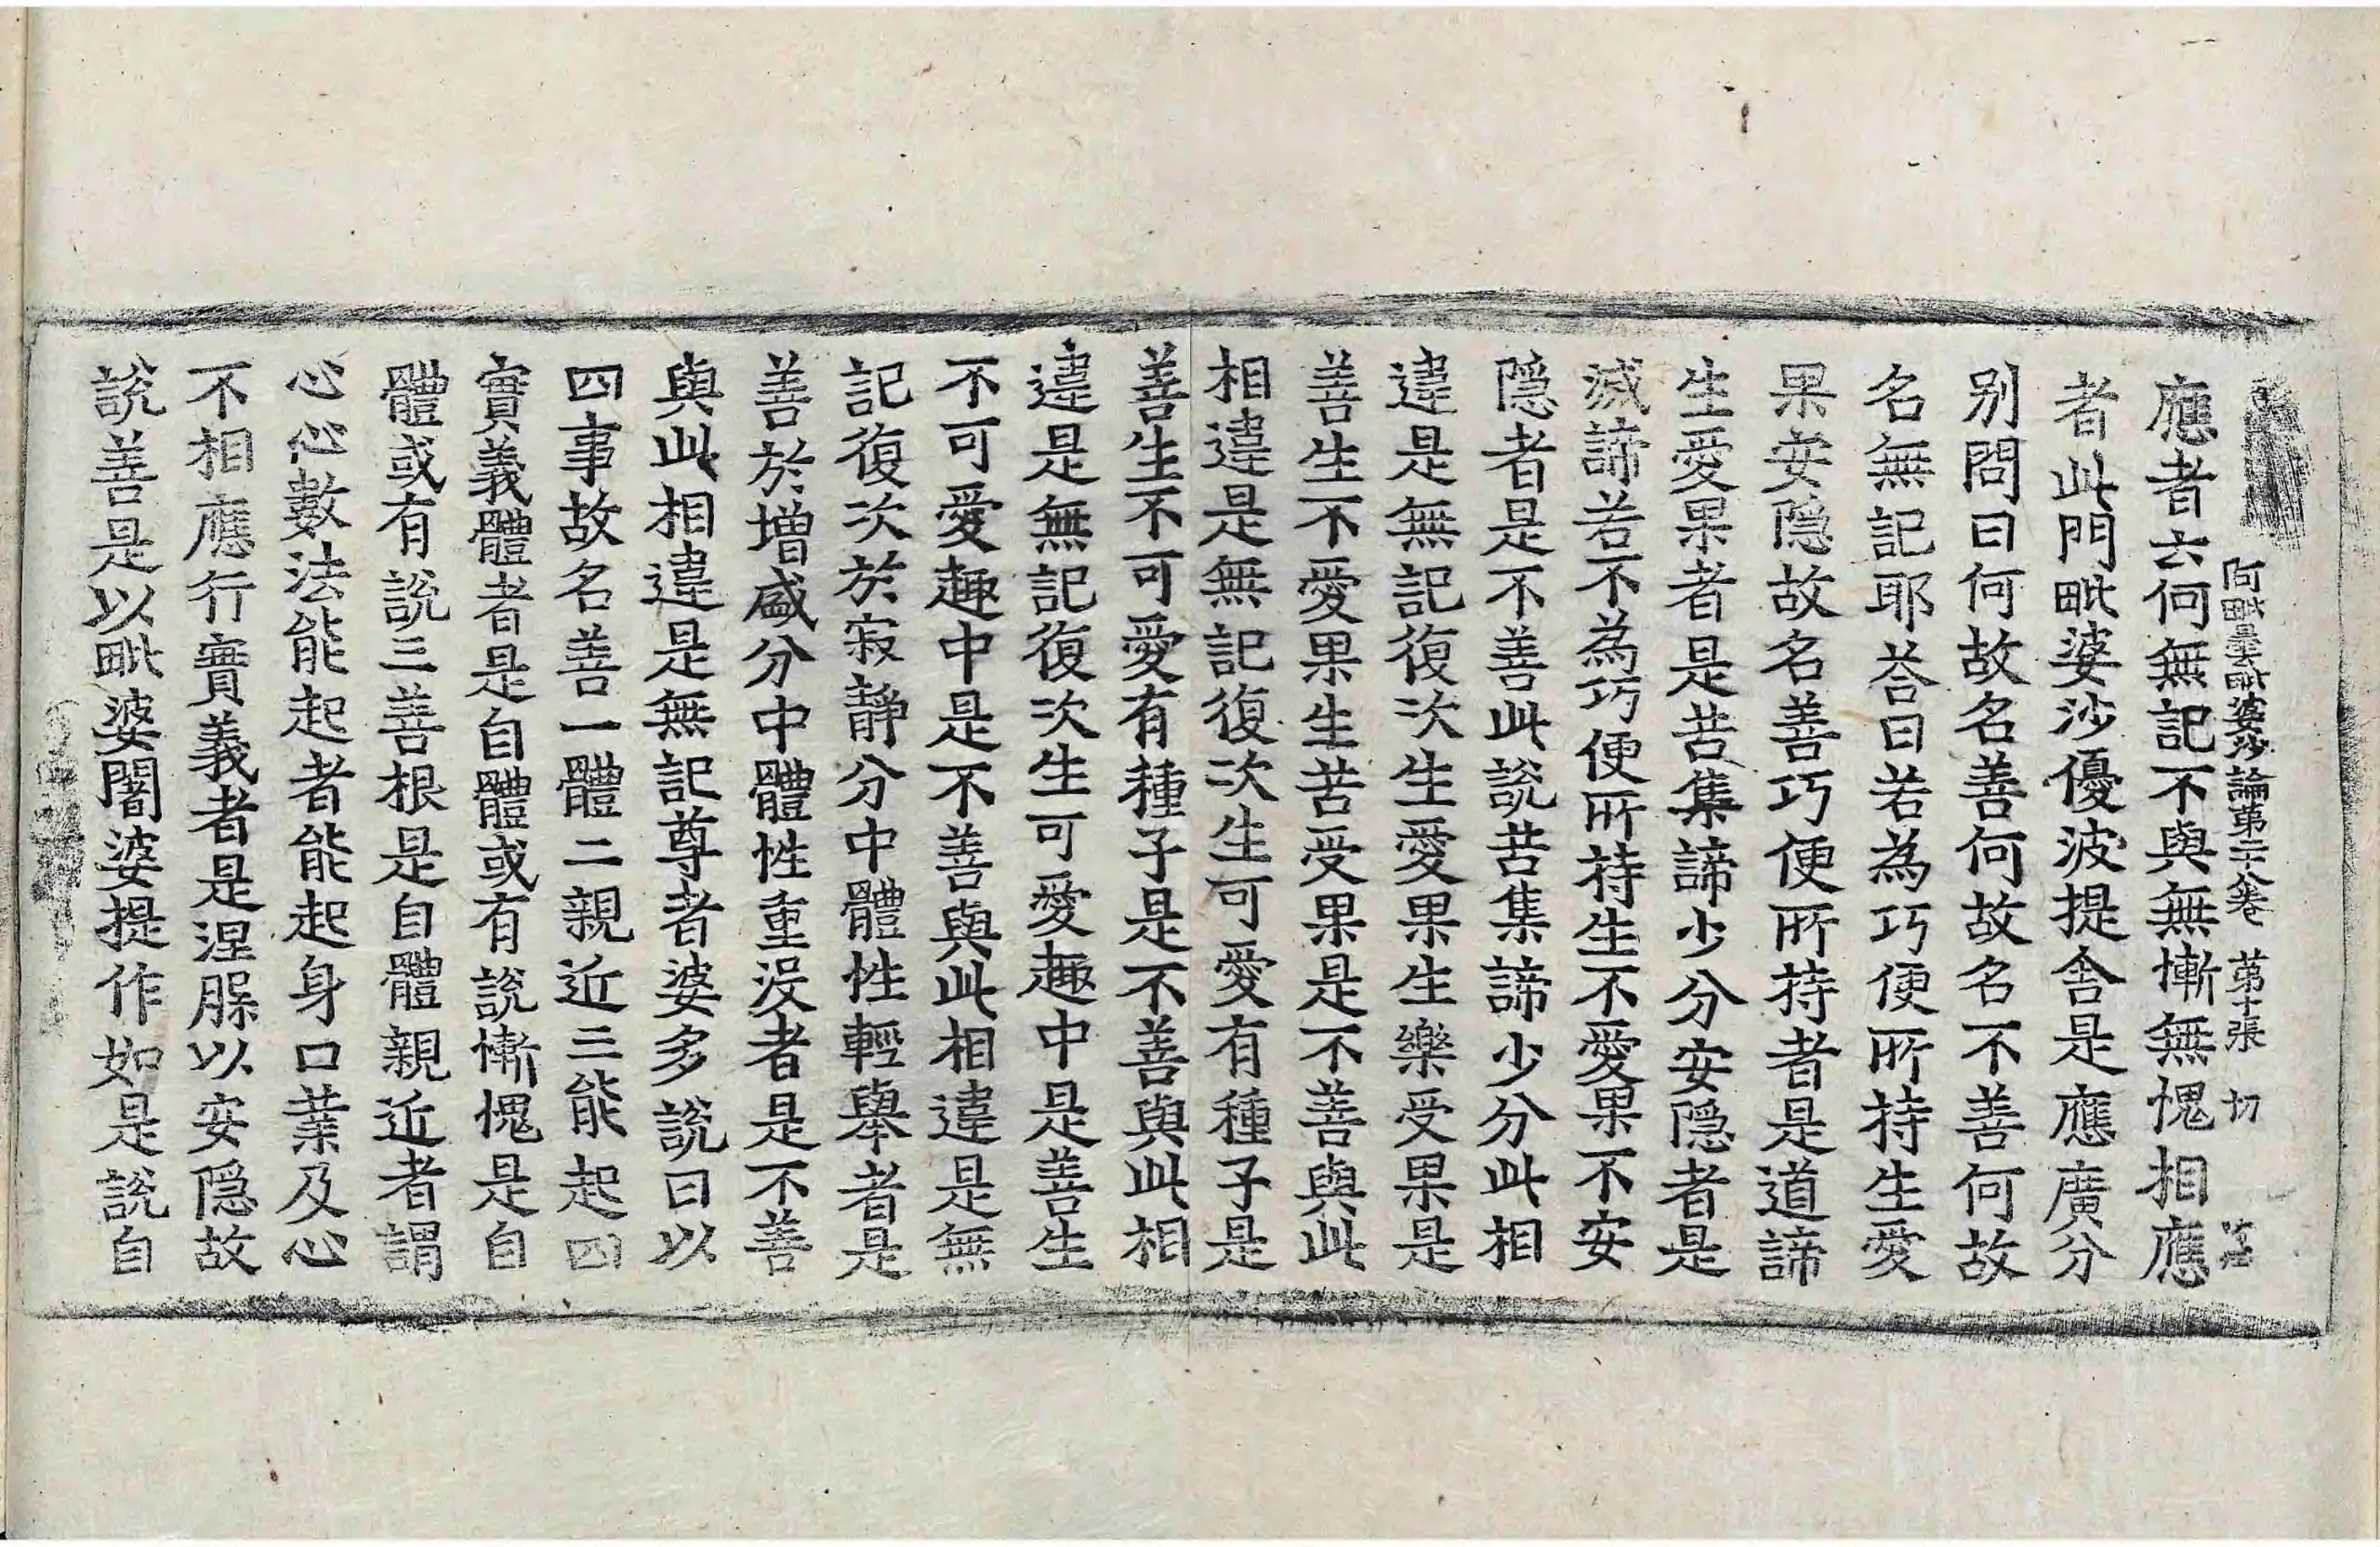 阿毗曇毗婆沙論第二十八卷 第十張 切
應者云何無記不與無慚無愧相應
者此門毗婆沙優波提舍是應廣分
別問曰何故名善何故名不善何故
名無記耶荅曰若為巧便所持生愛
果安隱故名善巧便所持者是道諦
生愛果者是苦集諦少分安隱者是
滅諦若不為巧便所持生不愛果不安
隱者是不善此說苦集諦少分此相
違是無記復次生愛果生樂受果是
善生不愛果生苦受果是不善與此
相違是無記復次生可愛有種子是
善生不可愛有種子是不善與此相
違是無記復次生可愛趣中是善生
不可愛趣中是不善與此相違是無
記復次於寂靜分中體性輕舉者是
善於增盛分中體性重沒者是不善
與此相違是無記尊者婆多說曰以
四事故名善一體二親近三能起四
實義體者是自體或有說慚愧是自
體或有說三善根是自體親近者謂
心心數法能起者能起身口業及心
不相應行實義者是涅槃以安隱故
說善是以毗婆闍婆提作如是說自